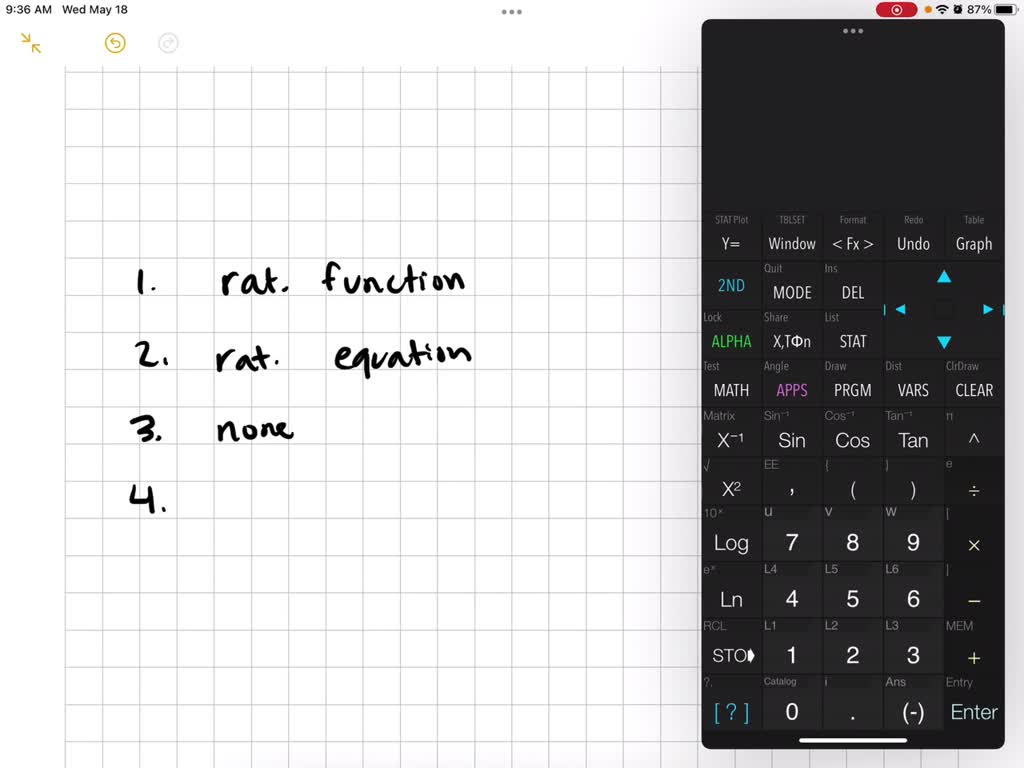 9:36 AM Wed May 18
87%
1. rat. function
2. rat. equation
3. none
4.
STAT Plot TBLSET Format Redo Table
Y= Window < Fx > Undo Graph
Quit Ins
2ND MODE DEL
Lock Share List
ALPHA X,TΦn STAT
Test Angle Draw Dist ClrDraw
MATH APPS PRGM VARS CLEAR
Matrix Sin⁻¹ Cos⁻¹ Tan⁻¹ π
X⁻¹ Sin Cos Tan ^
√ EE { } e
X² , ( ) ÷
10ˣ u v w [
Log 7 8 9 ×
eˣ L4 L5 L6 ]
Ln 4 5 6 −
RCL L1 L2 L3 MEM
STO 1 2 3 +
?. Catalog i Ans Entry
[ ? ] 0 . (-) Enter